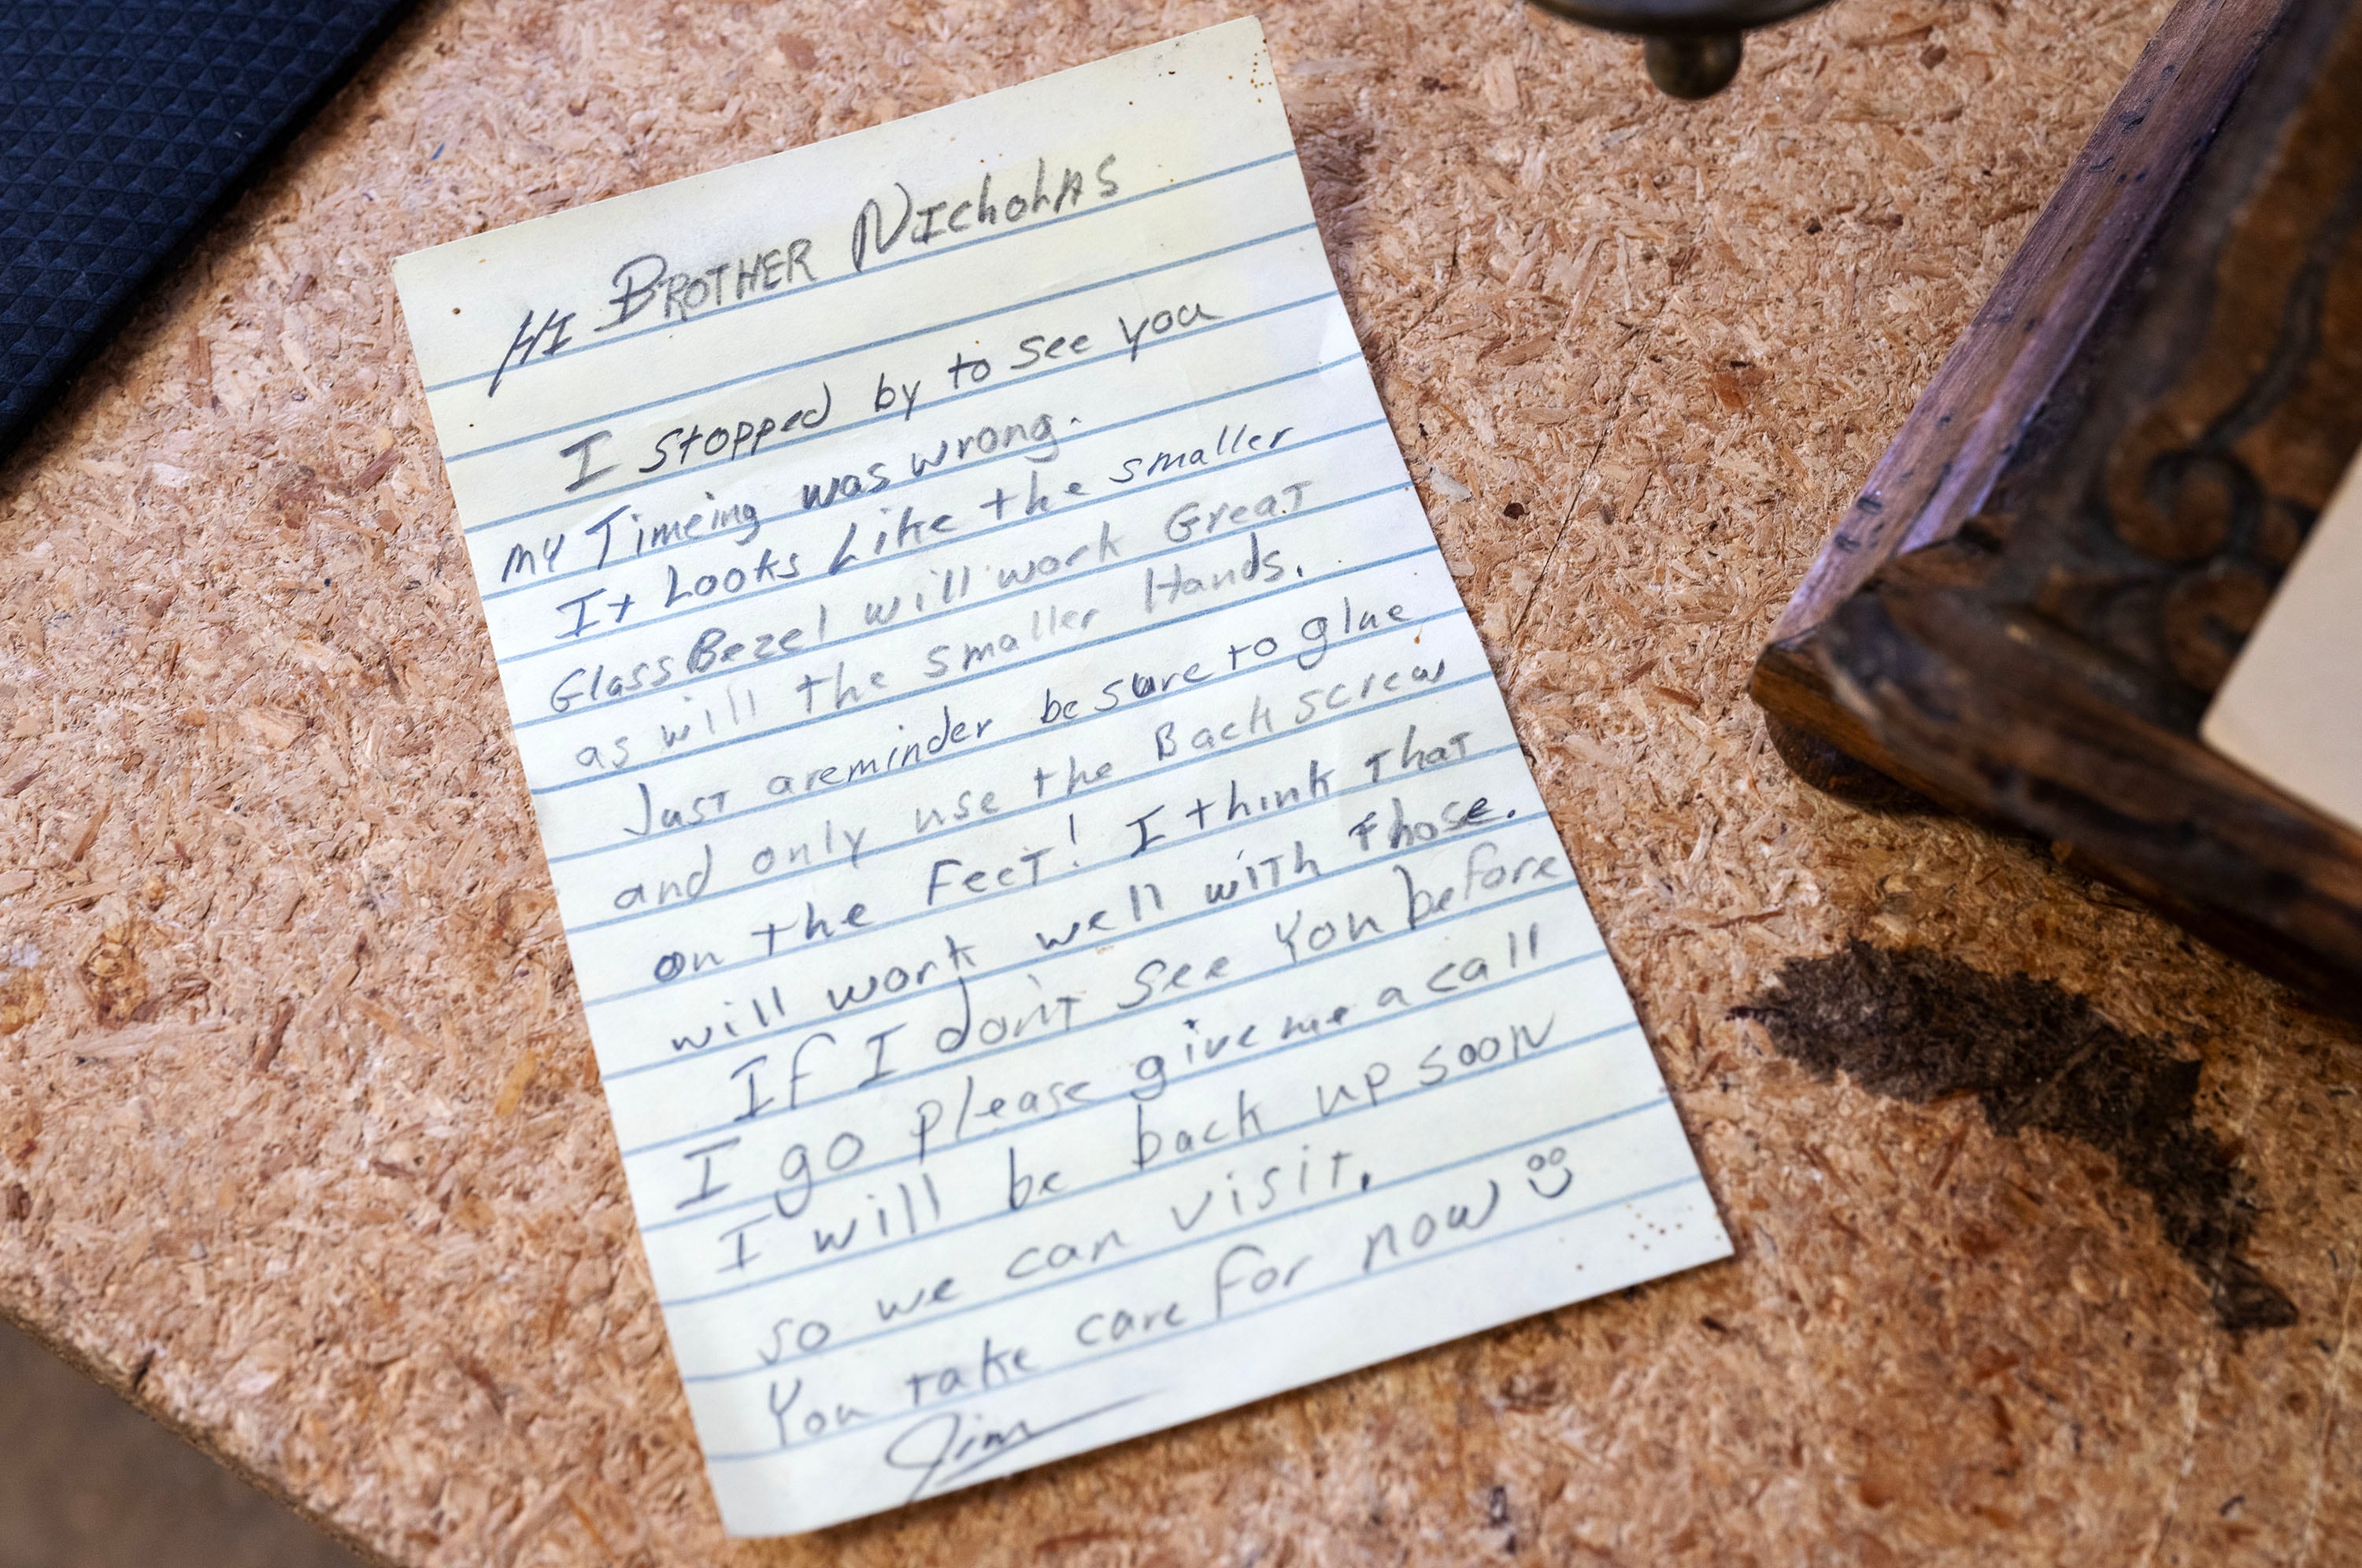 HI BROTHER NICHOLAS
I stopped by to see you
my Timeing was wrong.
It Looks Like the smaller
Glass Bezel will work Great
as will the smaller Hands.
Just a reminder be sure to glue
and only use the Back screw
on the FeeT! I think ThaT
will work well wiTh those.
If I don't See You before
I go please give me a call
I will be back up soon
so we can visit.
You take care for now
Jim